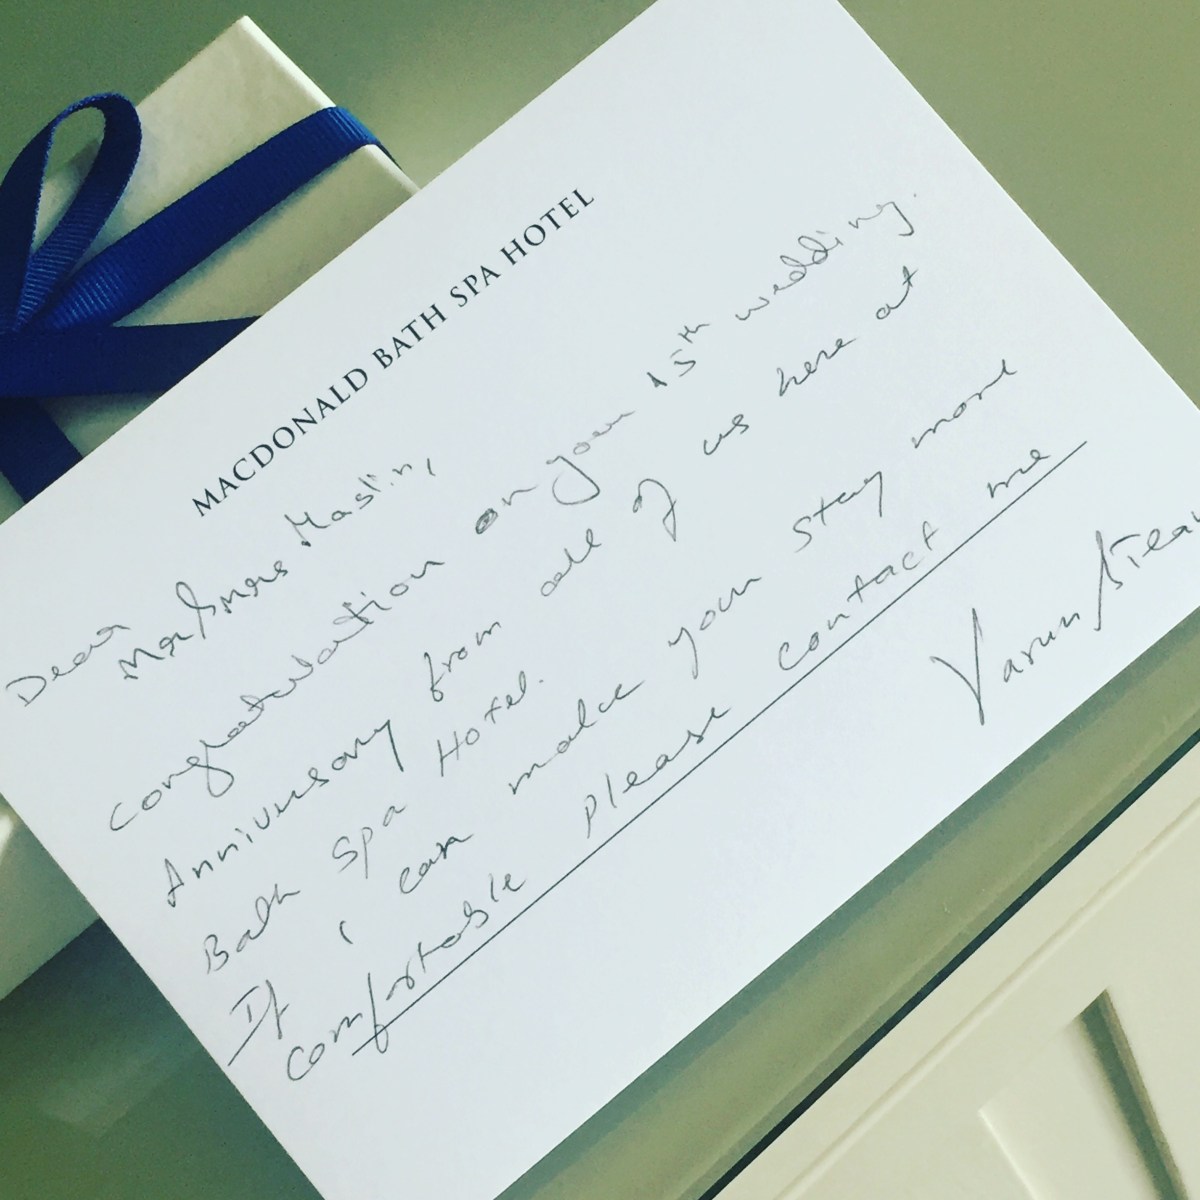 MACDONALD BATH SPA HOTEL
Dear
Mr/mrs Maslin,
congratulation on your 15th wedding.
Anniversary from all of us here at
Bath Spa Hotel.
If i can make your stay more
comfortable please contact me
Varun/